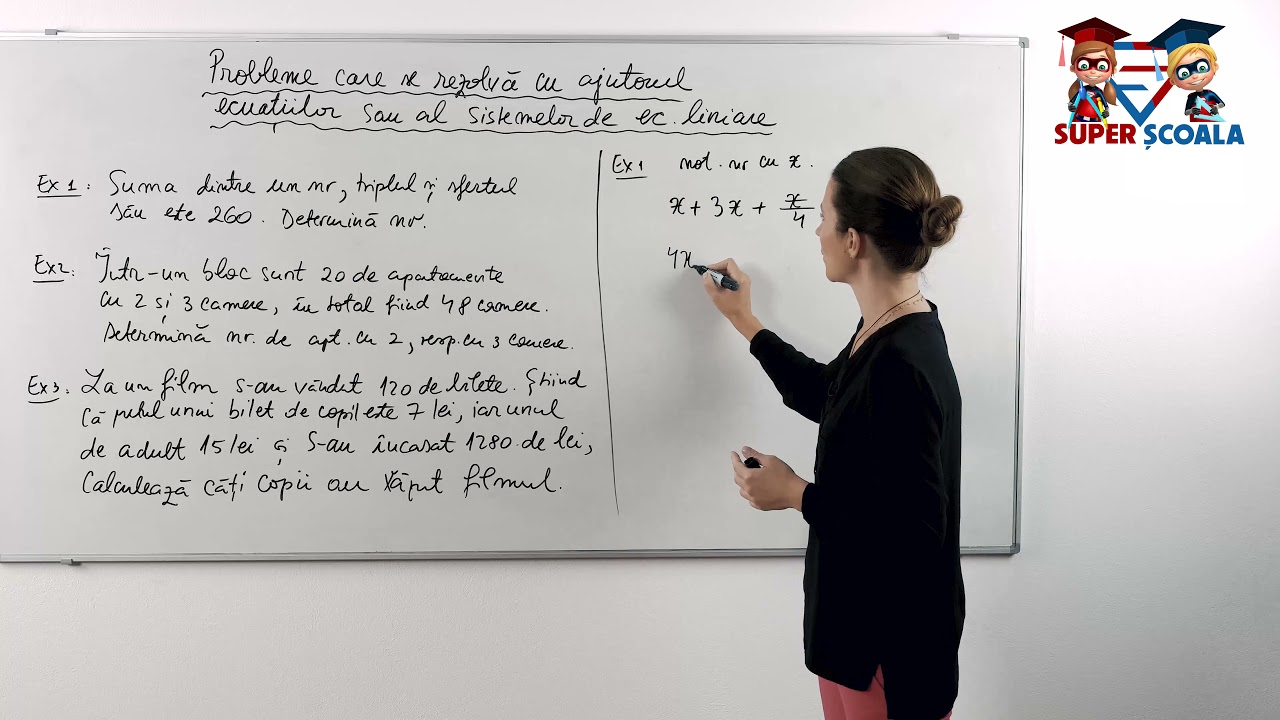 Probleme care se rezolvă cu ajutorul
ecuațiilor sau al sistemelor de ec. liniare
Ex 1: Suma dintre un nr, triplul și sfertul
său este 260. Determină nr.
Ex2. Într-un bloc sunt 20 de apartamente
cu 2 și 3 camere, în total fiind 48 camere.
Determină nr. de apt. cu 2, resp. cu 3 camere.
Ex3. La un film s-au vândut 120 de bilete. Știind
că prețul unui bilet de copil este 7 lei, iar unul
de adult 15 lei și s-au încasat 1280 de lei,
Calculează câți copii au văzut filmul.
Ex 1 not. nr cu x.
x + 3x + x/4
4x
SUPER ȘCOALA